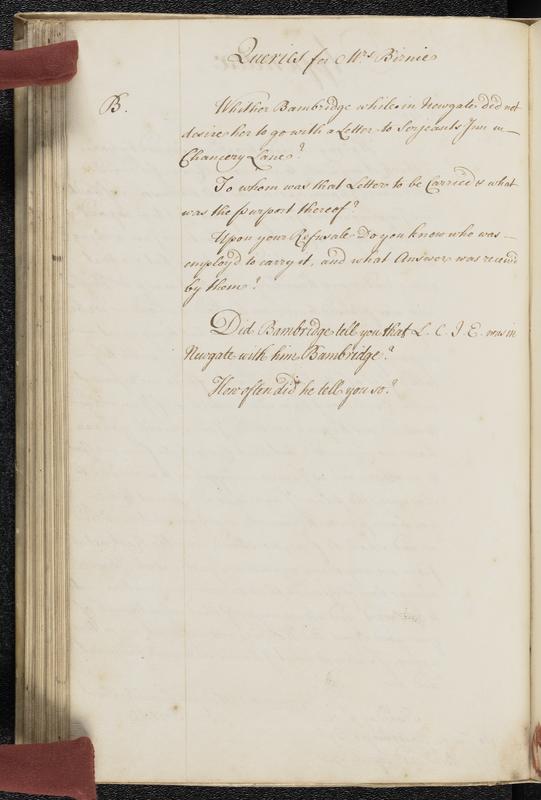 Queries for Mrs Birnie
B.
Whither Bambridge while in Newgate did not
desire her to go with a Letter to Serjeants Inn in
Chancery Lane?
To whom was that Letter to be Carried & what
was the purport thereof?
Upon your Refusale Do you know who was
employ'd to carry it, and what Answer was receiv'd
by them?
Did Bambridge tell you that L. C. J. E. was in
Newgate with him Bambridge?
How often did he tell you so?